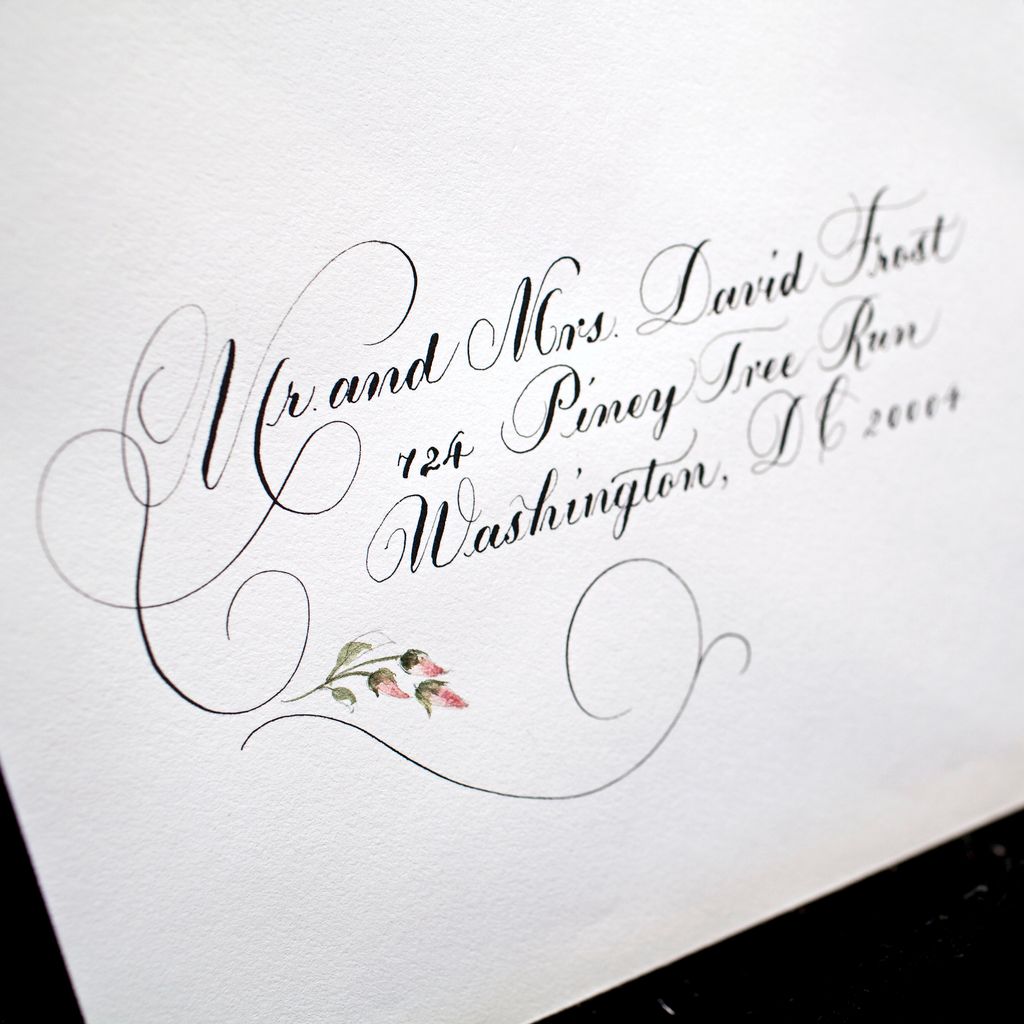 Mr. and Mrs. David Frost
724 Piney Tree Run
Washington, DC 20004